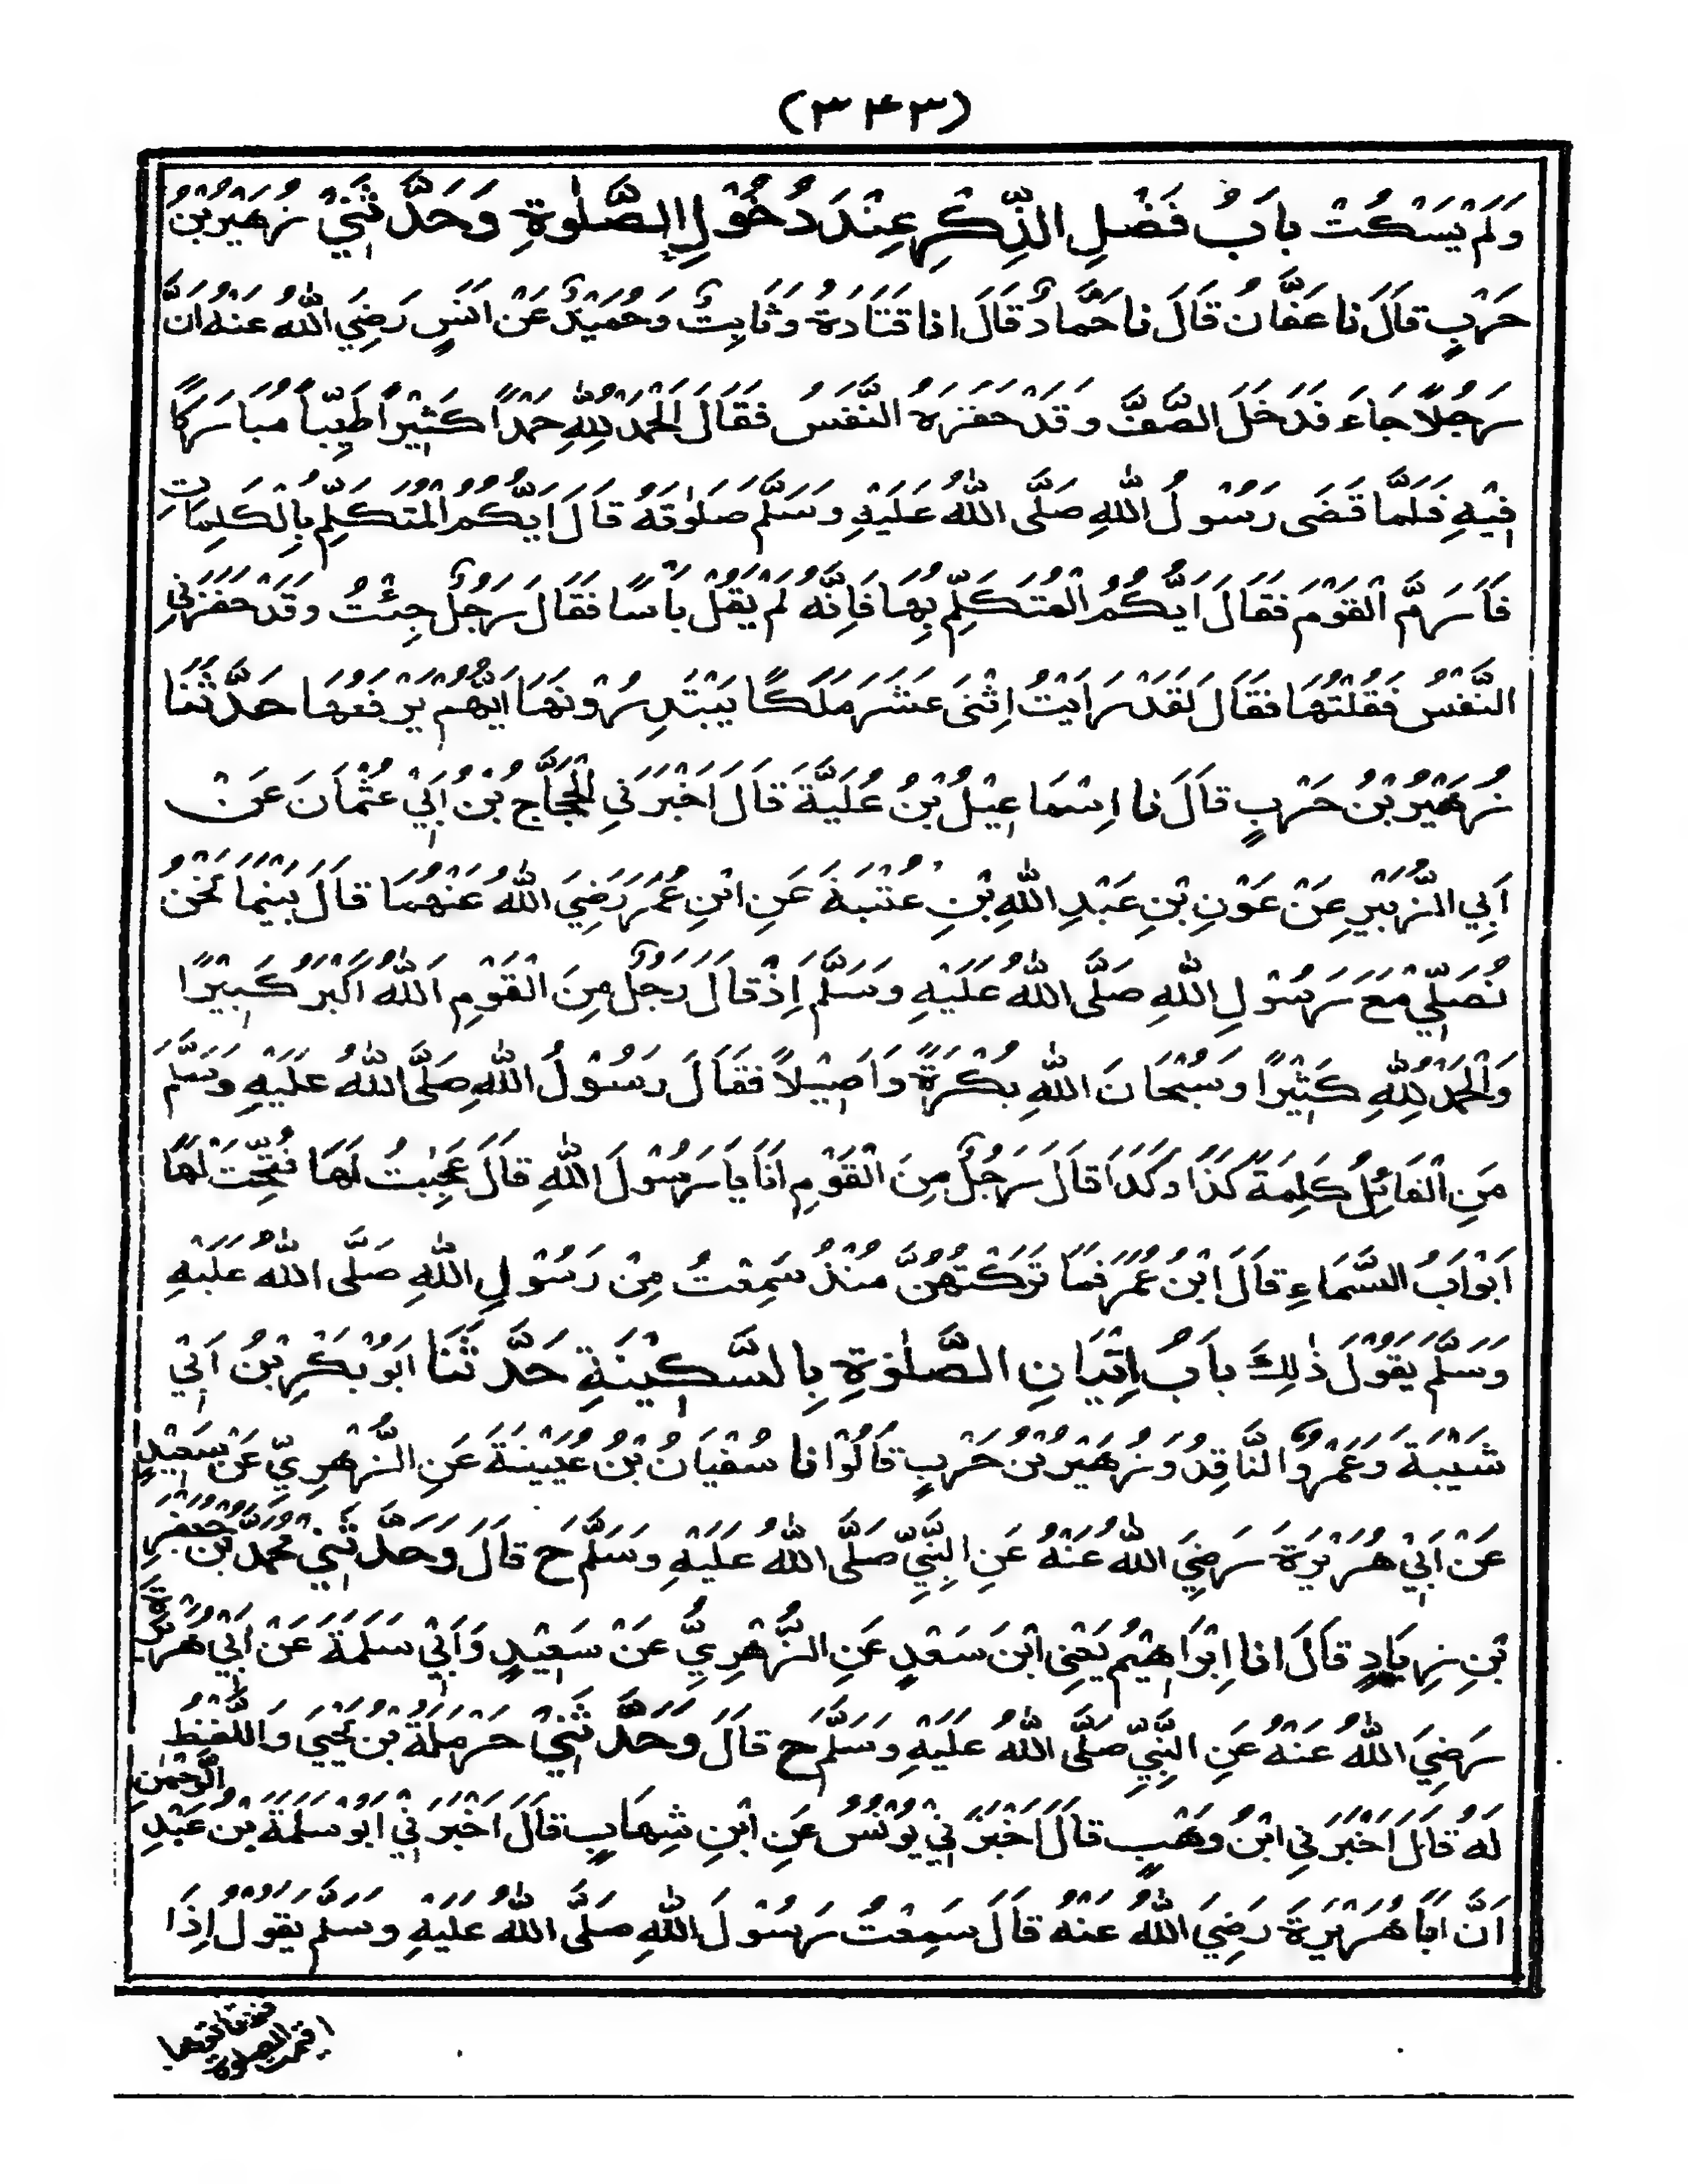 (٣٤٣)
وَلَمْ يَسْكُتْ بَابُ فَضْلِ الذِّكْرِ عِنْدَ دُخُوْلِ الصَّلٰوةِ وَحَدَّثَنِيْ زُهَيْرُ بْنُ
حَرْبٍ قَالَ نا عَفَّانُ قَالَ نا حَمَّادٌ قَالَ انا قَتَادَةُ وَثَابِتٌ وَحُمَيْدٌ عَنْ اَنَسٍ رَضِيَ اللّٰهُ عَنْهُ اَنَّ
رَجُلًا جَاءَ فَدَخَلَ الصَّفَّ وَقَدْ حَفَزَهُ النَّفَسُ فَقَالَ اَلْحَمْدُ لِلّٰهِ حَمْدًا كَثِيْرًا طَيِّبًا مُبَارَكًا
فِيْهِ فَلَمَّا قَضٰى رَسُوْلُ اللّٰهِ صَلَّى اللّٰهُ عَلَيْهِ وَسَلَّمَ صَلٰوتَهُ قَالَ اَيُّكُمُ الْمُتَكَلِّمُ بِالْكَلِمَاتِ
فَاَرَمَّ الْقَوْمُ فَقَالَ اَيُّكُمُ الْمُتَكَلِّمُ بِهَا فَاِنَّهُ لَمْ يَقُلْ بَاْسًا فَقَالَ رَجُلٌ جِئْتُ وَقَدْ حَفَزَنِي
النَّفَسُ فَقُلْتُهَا فَقَالَ لَقَدْ رَاَيْتُ اِثْنَى عَشَرَ مَلَكًا يَبْتَدِرُوْنَهَا اَيُّهُمْ يَرْفَعُهَا حَدَّثَنَا
زُهَيْرُ بْنُ حَرْبٍ قَالَ نا اِسْمَاعِيْلُ بْنُ عُلَيَّةَ قَالَ اَخْبَرَنِي الْحَجَّاجُ بْنُ اَبِيْ عُثْمَانَ عَنْ
اَبِي الزُّبَيْرِ عَنْ عَوْنِ بْنِ عَبْدِ اللّٰهِ بْنِ عُتْبَةَ عَنِ ابْنِ عُمَرَ رَضِيَ اللّٰهُ عَنْهُمَا قَالَ بَيْنَمَا نَحْنُ
نُصَلِّيْ مَعَ رَسُوْلِ اللّٰهِ صَلَّى اللّٰهُ عَلَيْهِ وَسَلَّمَ اِذْ قَالَ رَجُلٌ مِنَ الْقَوْمِ اَللّٰهُ اَكْبَرُ كَبِيْرًا
وَالْحَمْدُ لِلّٰهِ كَثِيْرًا وَسُبْحَانَ اللّٰهِ بُكْرَةً وَاَصِيْلًا فَقَالَ رَسُوْلُ اللّٰهِ صَلَّى اللّٰهُ عَلَيْهِ وَسَلَّمَ
مَنِ الْقَائِلُ كَلِمَةَ كَذَا وَكَذَا قَالَ رَجُلٌ مِنَ الْقَوْمِ اَنَا يَا رَسُوْلَ اللّٰهِ قَالَ عَجِبْتُ لَهَا فُتِّحَتْ لَهَا
اَبْوَابُ السَّمَاءِ قَالَ ابْنُ عُمَرَ فَمَا تَرَكْتُهُنَّ مُنْذُ سَمِعْتُ مِنْ رَسُوْلِ اللّٰهِ صَلَّى اللّٰهُ عَلَيْهِ
وَسَلَّمَ يَقُوْلُ ذٰلِكَ بَابُ اِتْيَانِ الصَّلٰوةِ بِالسَّكِيْنَةِ حَدَّثَنَا اَبُوْ بَكْرِ بْنُ اَبِيْ
شَيْبَةَ وَعَمْرٌو النَّاقِدُ وَزُهَيْرُ بْنُ حَرْبٍ قَالُوْا نا سُفْيَانُ بْنُ عُيَيْنَةَ عَنِ الزُّهْرِيِّ عَنْ سَعِيْدٍ
عَنْ اَبِيْ هُرَيْرَةَ رَضِيَ اللّٰهُ عَنْهُ عَنِ النَّبِيِّ صَلَّى اللّٰهُ عَلَيْهِ وَسَلَّمَ ح قَالَ وَحَدَّثَنِيْ مُحَمَّدُ بْنُ جَعْفَرِ
بْنِ زِيَادٍ قَالَ انا اِبْرَاهِيْمُ يَعْنِى ابْنَ سَعْدٍ عَنِ الزُّهْرِيِّ عَنْ سَعِيْدٍ وَاَبِيْ سَلَمَةَ عَنْ اَبِيْ هُرَيْرَةَ
رَضِيَ اللّٰهُ عَنْهُ عَنِ النَّبِيِّ صَلَّى اللّٰهُ عَلَيْهِ وَسَلَّمَ ح قَالَ وَحَدَّثَنِيْ حَرْمَلَةُ بْنُ يَحْيٰى وَاللَّفْظُ
لَهُ قَالَ اَخْبَرَنِي ابْنُ وَهْبٍ قَالَ اَخْبَرَنِيْ يُوْنُسُ عَنِ ابْنِ شِهَابٍ قَالَ اَخْبَرَنِيْ اَبُوْ سَلَمَةَ بْنُ عَبْدِ الرَّحْمٰنِ
اَنَّ اَبَا هُرَيْرَةَ رَضِيَ اللّٰهُ عَنْهُ قَالَ سَمِعْتُ رَسُوْلَ اللّٰهِ صَلَّى اللّٰهُ عَلَيْهِ وَسَلَّمَ يَقُوْلُ اِذَا
اقيمت الصلوة
فلا تاتوها